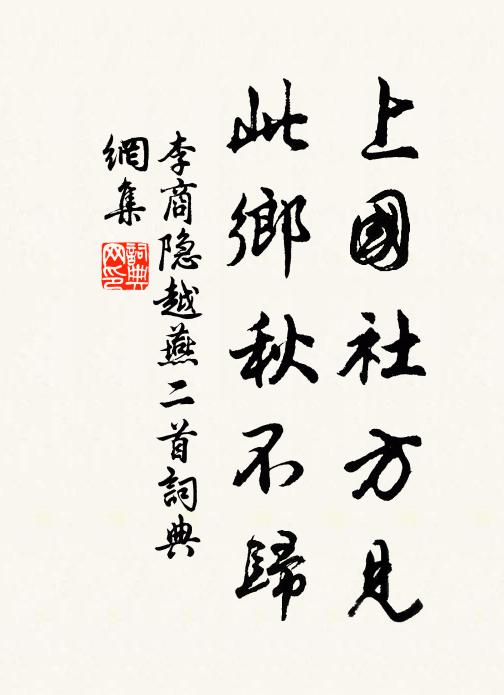 上國社方見
此鄉秋不歸
李商隐越燕二首詞典
網集
詞典
网印